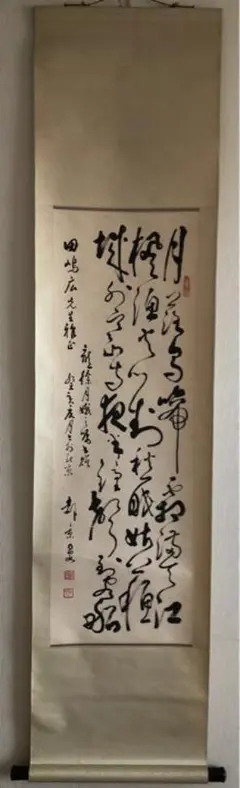 月落烏啼霜滿天江
楓漁火對愁眠姑蘇
城外寒山寺夜半鐘聲到客船
癸亥夏月于北京
田嶋広先生雅正